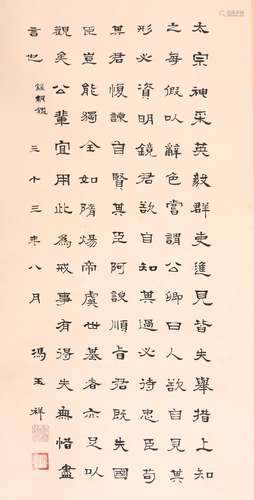 太宗神采英毅群吏進見皆失舉措上知
之每假以辭色嘗謂公卿曰人欲自見其
形必資明鏡君欲自知其過必待忠臣苟
其君愎諫自賢其臣阿諛順旨君既失國
臣豈能獨全如隋煬帝虞世基者亦足以
觀矣公輩宜用此為戒事有得失無惜盡
言也
三十三年八月 馮玉祥